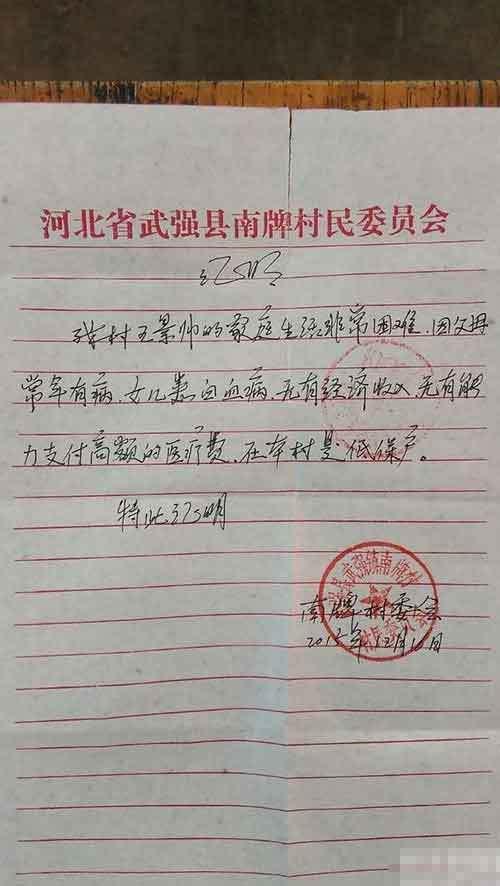 河北省武强县南牌村民委员会
证明
我村王景帅的家庭生活非常困难.因父母
常年有病、女儿患白血病、无有经济收入.无有能
力支付高额的医疗费、在本村是低保户。
特此证明
南牌村委会
2015年12月10日